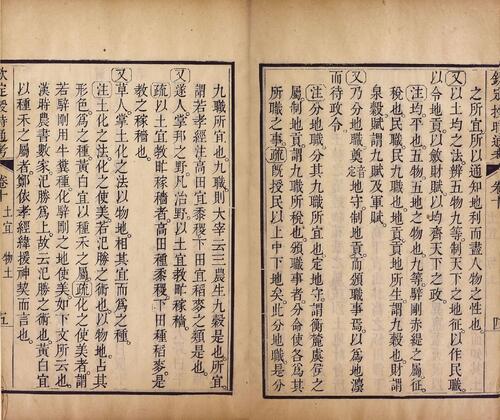 之所宜所以通知地利而盡人物之性也
又以土均之法辨五物九等制天下之地征以作民職
以令地貢以斂財賦以均齊天下之政
注均平也五物五地之物也九等騂剛赤緹之屬征
稅也民職民九職也地貢貢地所生謂九穀也財謂
泉穀賦謂九賦及軍賦
又乃分地職奠音定地守制地貢而頒職事焉以為地灋
而待政令
注分地職分其九職所宜也定地守謂衡麓虞𠊱之
屬制地貢謂九職所稅也頒職事者分命使各為其
所職之事疏既授民以上中下地矣此分地職是分
九職所宜也九職則大宰云三農生九穀是也所宜
謂若孝經注高田宜黍稷下田宜稻麥之類是也
又遂人掌邦之野凡治野以土宜教甿稼穡
疏以土宜教甿稼穡者高田種黍稷下田種稻麥是
教之稼穡也
又草人掌土化之法以物地相其宜而為之種
注土化之法化之使美若氾勝之術也以物地占其
形色為之種黃白宜以種禾之屬疏化之使美者謂
若騂剛用牛糞種化騂剛之地使美如下文所云也
漢時農書數家氾勝為上故云氾勝之術也黃白宜
以種禾之屬者鄭依孝經緯援神契而言也
欽定授時通考 卷十 土宜 物土 五